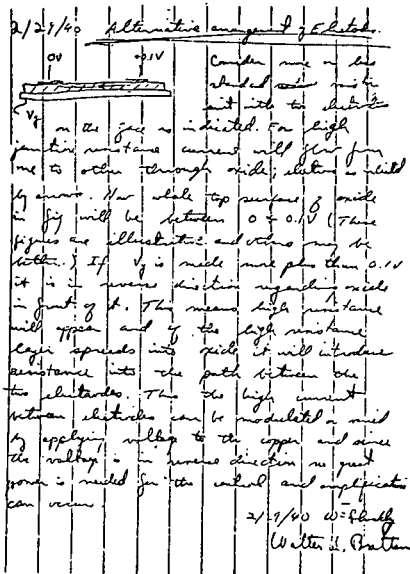 2/29/40 Alternative arrangement of Electrodes.
0V +0.1V Consider more or less
standard unit with two electrodes
Vg on the face as indicated. For high
junction resistance current will flow from
one to other through oxide; electrons as
by arrows. Now whole top surface of oxide
in fig will be between 0 & 0.1V (These
figures are illustrative and others may be
better.) If Vg is made more plus than 0.1V
it is in reverse direction regarding oxide
in front of it. This means high resistance
will appear and if the high resistance
layer spreads into oxide it will introduce
resistance into the path between the
two electrodes. Thus the high current
between electrodes can be modulated
by applying voltage to the copper and since
the voltage is in reverse direction no great
power is needed for the control and amplification
can occur.
2/29/40 W Shockley
Walter H. Brattain